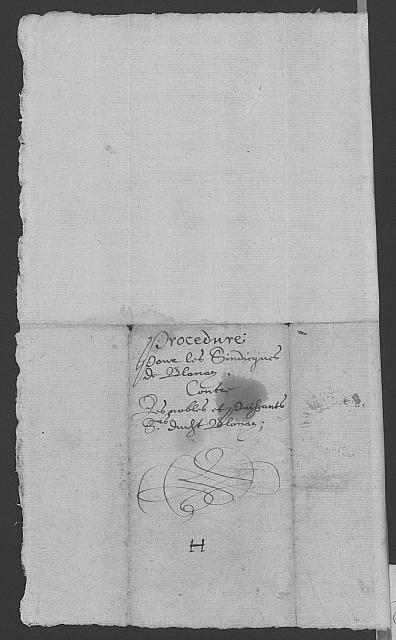 Procedure
Pour les Sindicques
de Blonay
Contre
Les nobles et Puissants
Srs dudit Blonay;
H